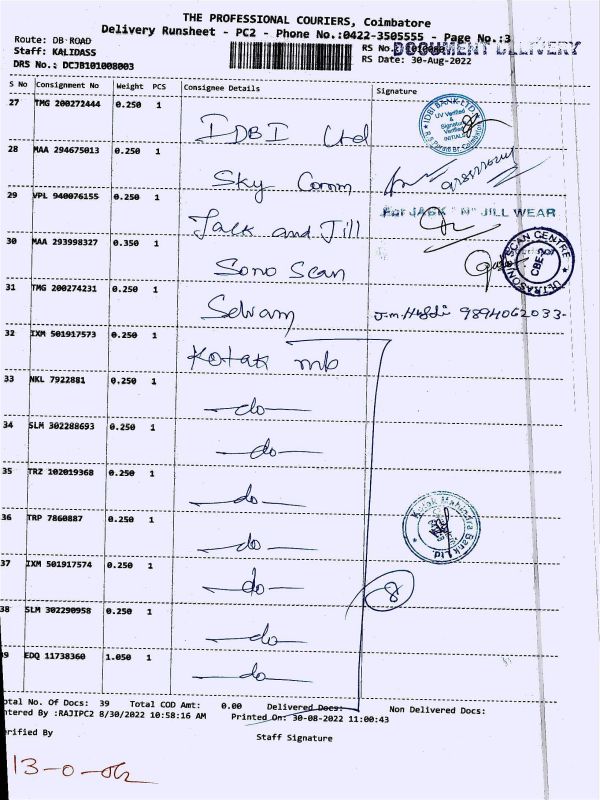 THE PROFESSIONAL COURIERS, Coimbatore
Delivery Runsheet - PC2 - Phone No.:0422-3505555 - Page No.:3
Route: DB ROAD
Staff: KALIDASS
RS No. DOCUMENT DELIVERY
DRS No.: DCJB101008003
RS Date: 30-Aug-2022
S No Consignment No Weight PCS Consignee Details Signature
27 TMG 200272444 0.250 1 IDBI Ltd
IDBI BANK LTD
UV Verified & Signature Verified INITIAL
28 MAA 294675013 0.250 1 Sky Comm
29 VPL 940076155 0.250 1 Jack and Jill
For JACK "N" JILL WEAR
30 MAA 293998327 0.350 1 Sono Scan
SCAN CENTRE CBE-2
31 TMG 200274231 0.250 1 Selvam 9894062033-
32 IXM 501917573 0.250 1 Kotak mb
33 NKL 7922881 0.250 1 -do-
34 SLM 302288693 0.250 1 -do-
35 TRZ 102019368 0.250 1 -do-
Kotak Mahindra Bank Ltd
36 TRP 7860887 0.250 1 -do-
37 IXM 501917574 0.250 1 -do-
8
38 SLM 302290958 0.250 1 -do-
39 EDQ 11738360 1.050 1 -do-
otal No. Of Docs: 39 Total COD Amt: 0.00 Delivered Docs: Non Delivered Docs:
ntered By :RAJIPC2 8/30/2022 10:58:16 AM Printed On: 30-08-2022 11:00:43
erified By Staff Signature